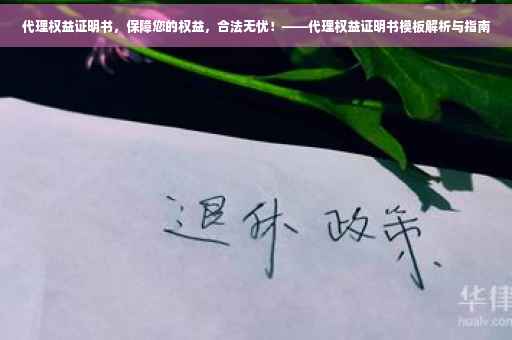 代理权益证明书，保障您的权益，合法无忧！——代理权益证明书模板解析与指南
退休 政策
华律
hualv.com